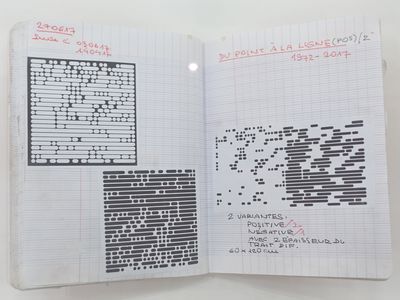 270617
030617
190417
DU POINT À LA LIGNE (POS)/2
1972-2017
2 VARIANTES.
POSITIVE/2.
NEGATIVE/1
AVEC 2 EPAISSEUR DU
TRAIT DIF.
60 x 120 cm